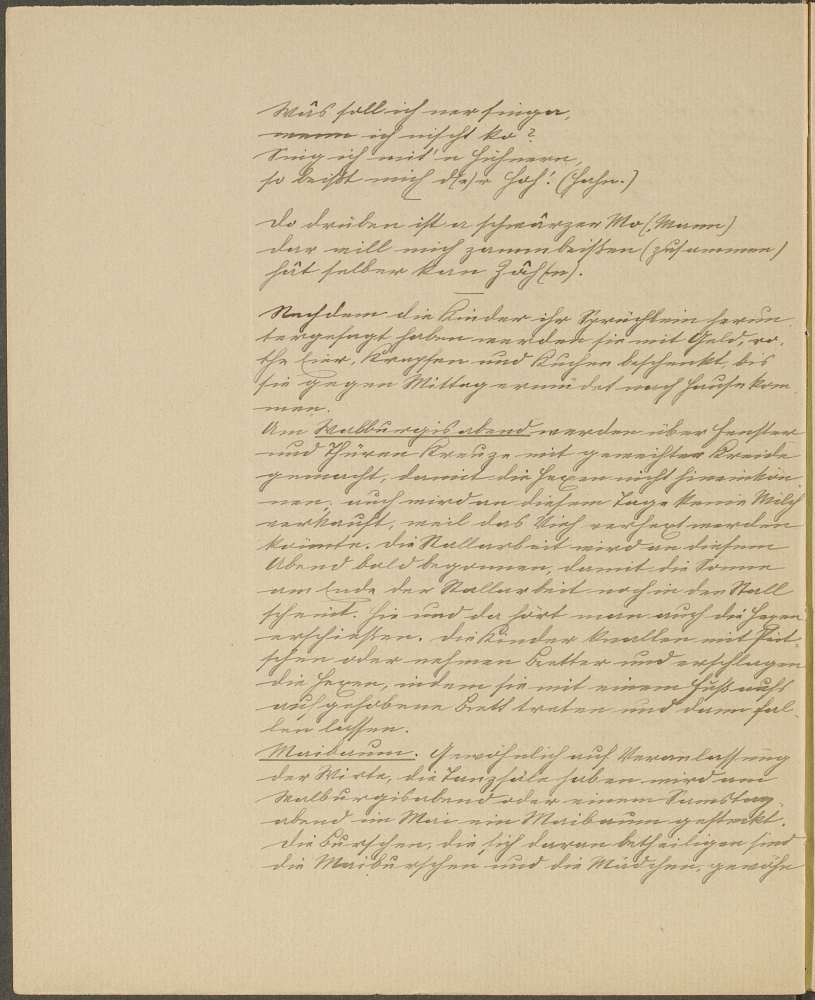 Wås soll ich ner singa,
wenn ich nischt ko?
Sing ich mit'n Hühnern,
so beißt mich d(e)r Hoh! (Hahn.)
Do drüben ist a schwårzer Mo (Mann)
dar will mich zammbeißen (zusammen)
håt selber kan Zåh(n).
Nachdem die Kinder ihr Sprüchlein herun
tergesagt haben werden sie mit Geld, ro-
the Eier, Krapfen und Kuchen beschenkt, bis
sie gegen Mittag ermüdet nach Hause kom
men.
Am Walburgisabend werden über Fenster
und Thüren Kreuze mit geweihter Kreide
gemacht, damit die Hexen nicht hineinkön
nen, auch wird an diesem Tage keine Milch
verkauft, weil das Vieh verhext werden
könnte. Die Stallarbeit wird an diesem
Abend bald begonnen, damit die Sonne
am Ende der Stallarbeit noch in den Stall
scheint. Hie und da hört man auch die Hexen
erschießen. Die Kinder knallen mit Peit-
schen oder nehmen Bretter und erschlagen
die Hexen, indem sie mit einem Fuß aufs
aufgehobene Brett treten und dann fal-
len lassen.
Maibaum. Gewöhnlich auf Veranlassung
der Wirte, die Tanzsäle haben wird am
Walburgisabend oder einem Samstag-
abend im Mai ein Maibaum gesteckt.
Die Burschen, die sich daran betheiligen sind
die Maiburschen und die Mädchen, gewöhn